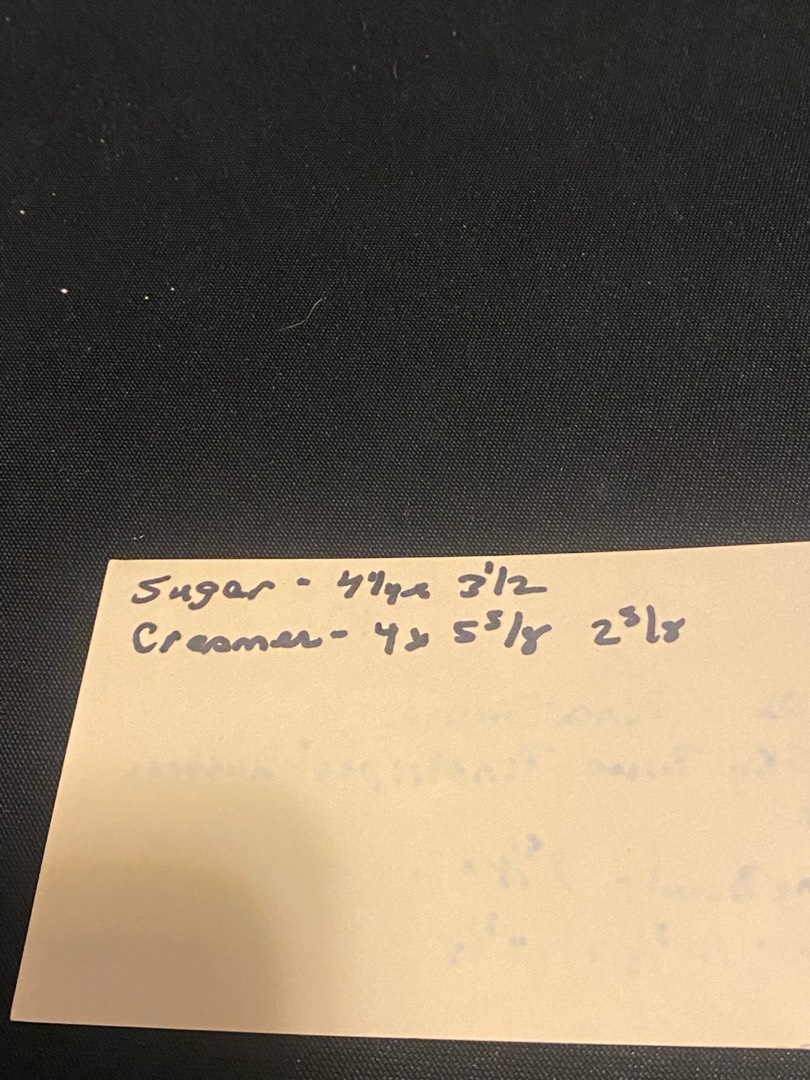 Sugar - 4 1/4 x 3 1/2
Creamer - 4 x 5 5/8 2 5/8